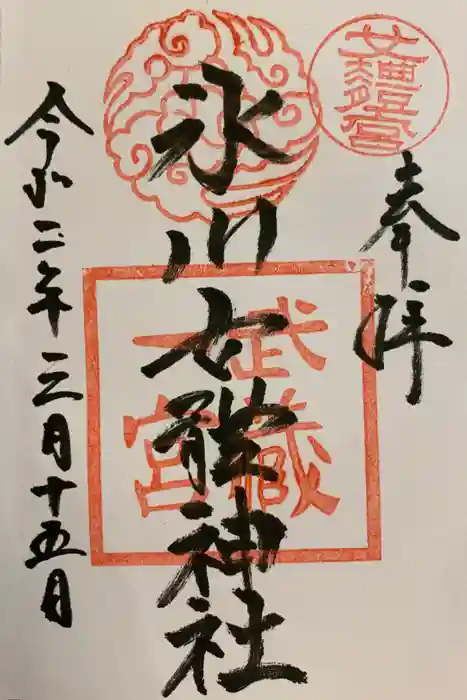 奉拝
氷川女體神社
令和二年三月十五日
女體宮
武藏
一宮